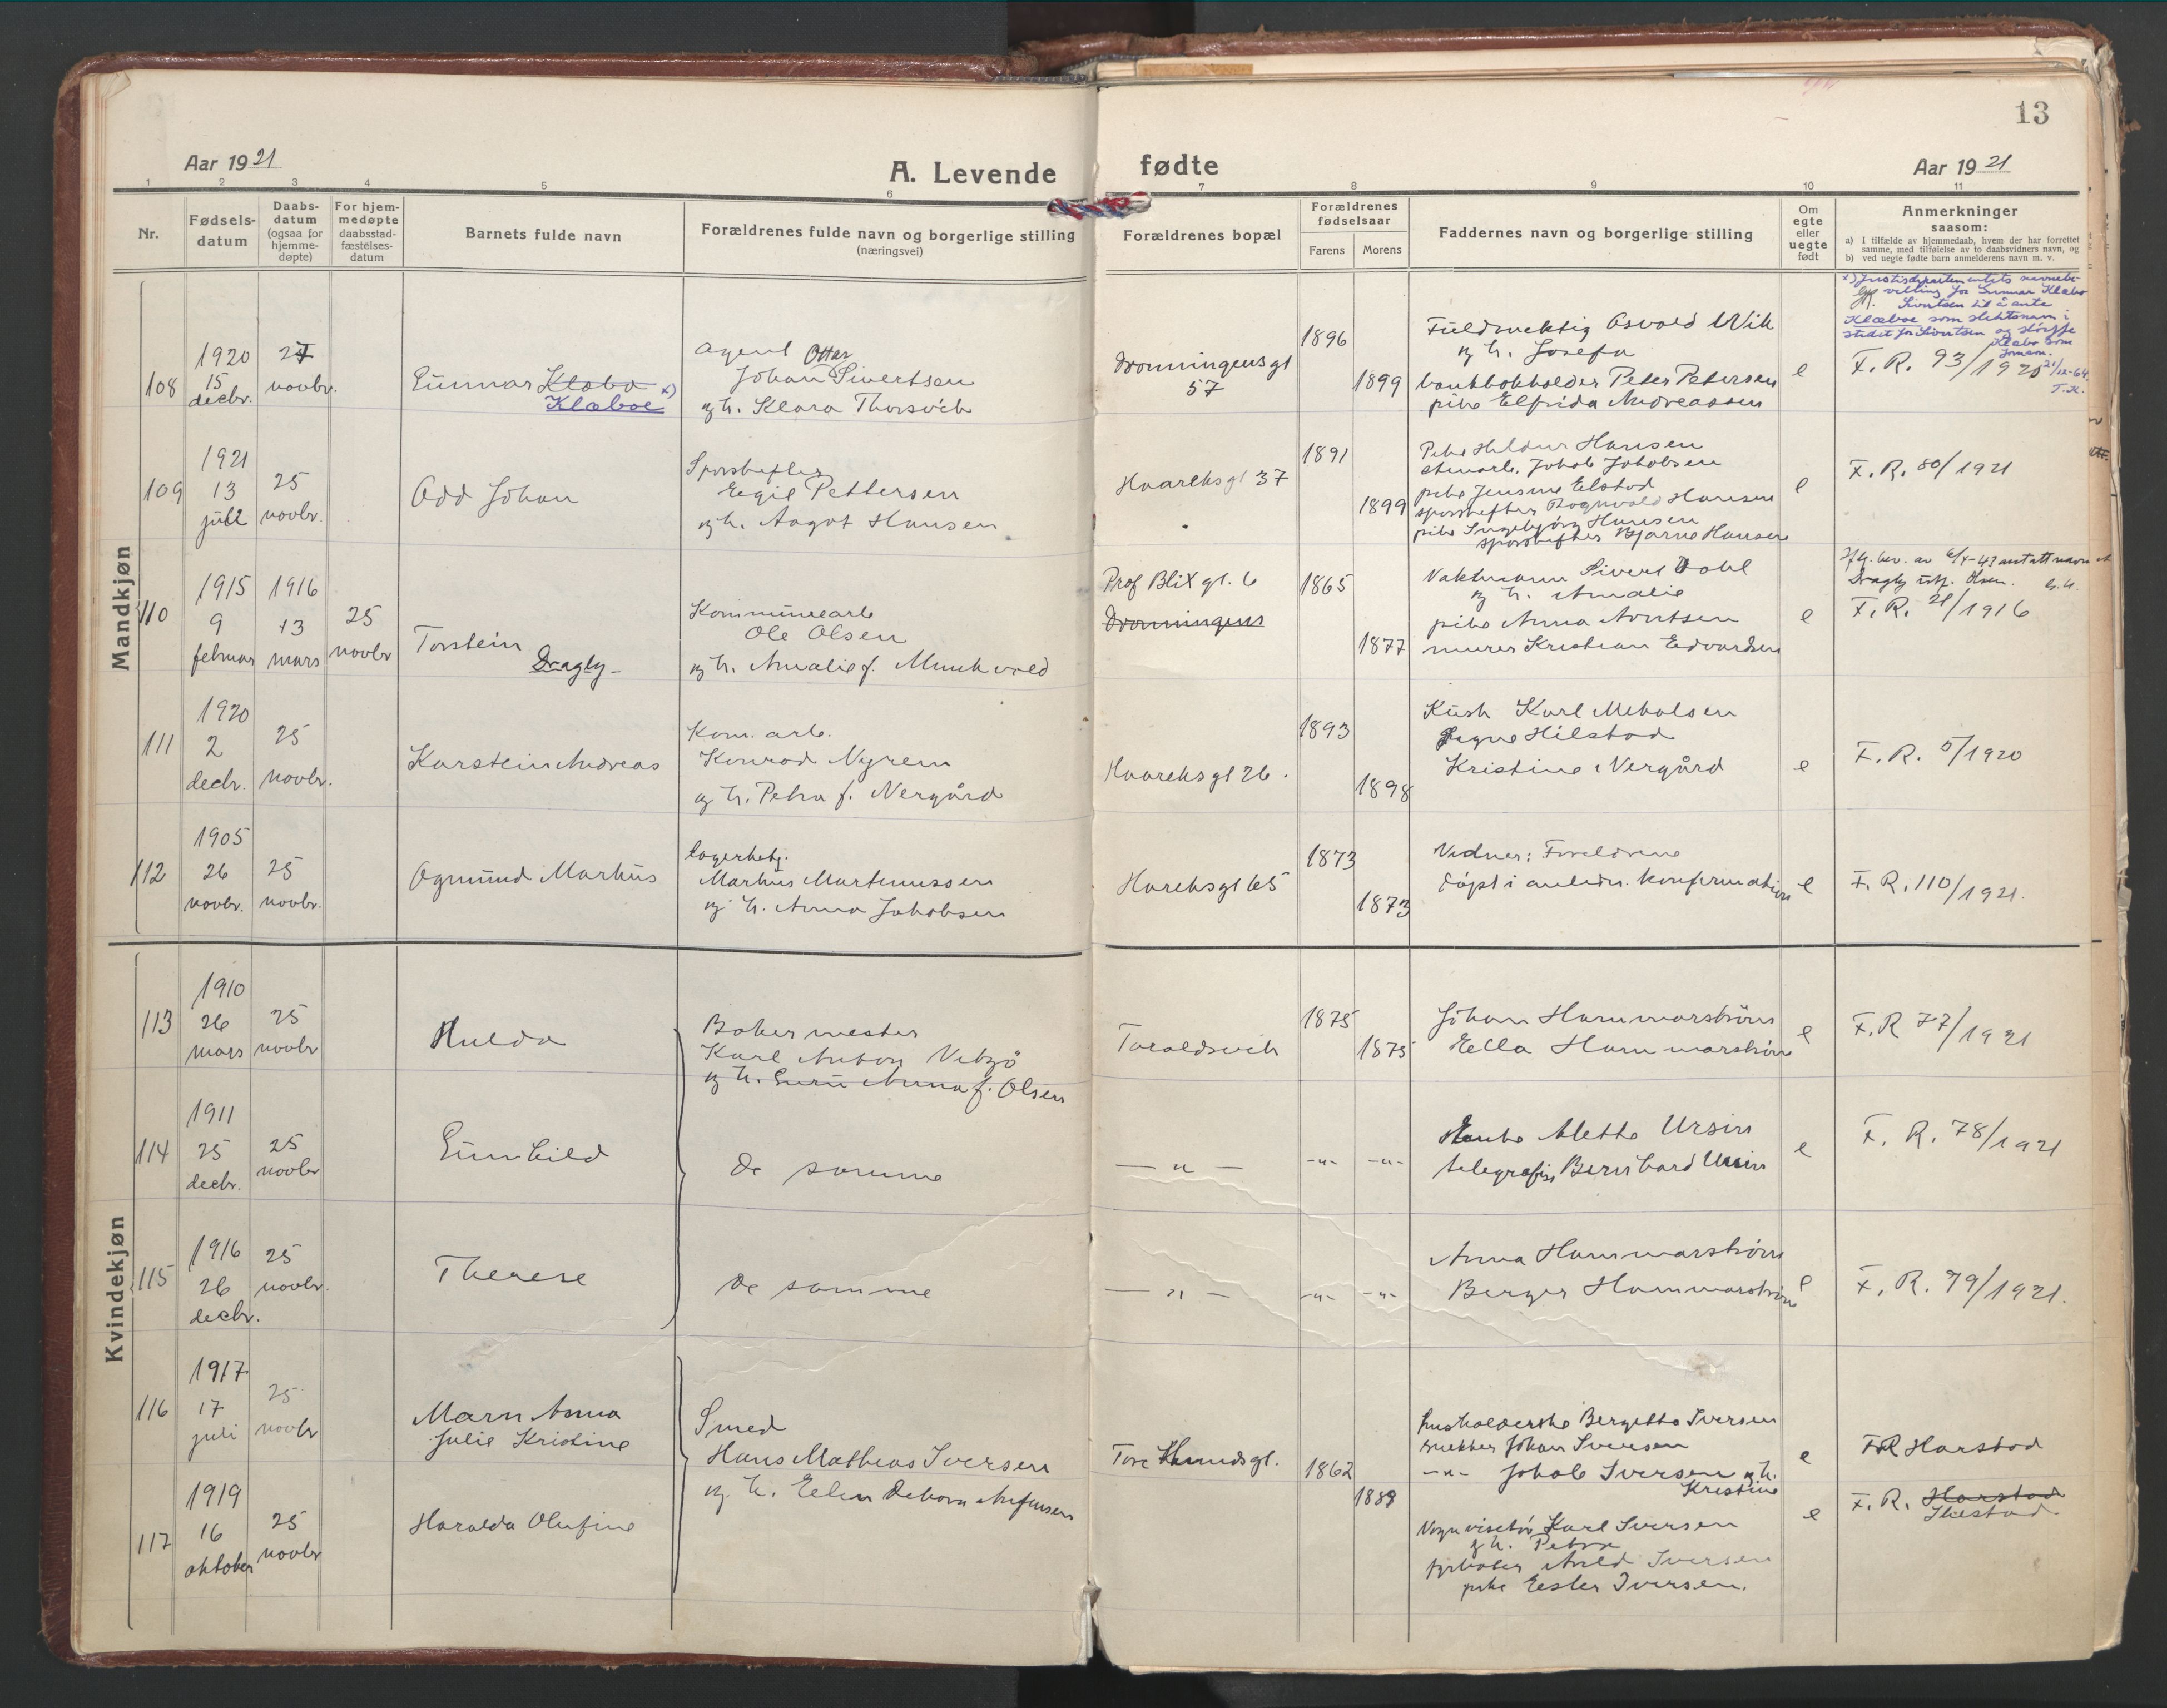 13
Aar 1921
A. Levende fødte
Aar 1921
1 2 3 4 5 6 7 8 9 10 11
Nr.
Fødsels-
datum
Daabs-
datum
(ogsaa for
hjemme-
døpte)
For hjem-
medøpte
daabsstad-
fæstelses-
datum
Barnets fulde navn
Forældrenes fulde navn og borgerlige stilling
(næringsvei)
Forældrenes bopæl
Forældrenes
fødselsaar
Farens Morens
Faddernes navn og borgerlige stilling
Om
egte
eller
uegte
født
Anmerkninger
saasom:
a) I tilfælde av hjemmedaab, hvem der har forrettet
samme, med tilføielse av to daabsvidners navn, og
b) ved uegte fødte barn anmelderens navn m. v.
Mandkjøn
108
1920
15
decbr.
27
novbr.
Gunnar Klæbo x)
Klæboe
Agent Ottar
Johan Sivertsen
og h. Klara Thorsvik
Dronningens gt
57
1896
1899
Fuldmektig Osvald Wik
og h. Josefa
bankbokholder Peter Petersen
pike Elfrida Andreassen
e
x) Justisdepartementets navnebe-
villing for Gunnar Klæbo
Sivertsen til å anta
Klæboe som slektsnavn i
stedet for Sivertsen og sløyfe
Klæbo som
fornavn.
21/12-64.
F. R. 93/1920
109
1921
13
juli
25
novbr.
Odd Johan
Sporskifter
Egil Pettersen
og h. Aagot Hansen
Haareksgt 37
1891
1899
Pike Hildur Hansen
Jakob Jakobsen
pike Jensine Elstad
sporskifter Rognvald Hansen
pike Ingebjørg Hansen
sporskifter Bjarne Hansen
e
F. R. 80/1921
110
1915
9
februar
1916
13
mars
25
novbr
Torstein
Dragly
Kommunearb
Ole Olsen
og h. Amalie f. Munkvold
Prof Blix gt. 6
Dronningens
1865
1877
Vaktmann Sivert Dahl
og h. Amalie
pike Anna Arntsen
murer Kristian Edvardsen
e
Ifg. bev. av 6/4-43 antatt navnet
Dragly istf. Olsen.
F. R. 21/1916
111
1920
2
decbr.
25
novbr.
Karstein Andreas
Kom. arb.
Konrad Nyrem
og h. Petra f. Nergård
Haareksgt 26.
1893
1898
Kusk Karl Mikalsen
Signe Hilstad
Kristine Nergård
e
F. R. 5/1920
112
1905
26
novbr.
25
novbr.
Ogmund Markus
lagerbetj.
Markus Martinussen
og h. Anna Jakobsen
Hareksgt 65
1873
1873
Vidner: Foreldrene
døpt i anledn. konfirmation
e
F. R. 110/1921.
Kvindekjøn
113
1910
26
mars
25
novbr
Hulda
Bakermester
Karl Anton
og h. Guru Anna f. Olsen
Toraldsvik
1875
1875
Johan Hammarstrøm
Ella Hammarstrøm
e
F. R 77/1921
114
1911
25
decbr.
25
novbr
Gunhild
De samme
— " —
-"- -"-
Enke Aletta Ursin
telegrafist Bernhard Ursin
e
F. R. 78/1921
115
1916
26
decbr.
25
novbr.
Therese
De samme
— " —
-"- -"-
Anna Hammarstrøm
Birger Hammarstrøm
e
F. R. 79/1921.
116
1917
17
juli
25
novbr
Marn Anna
Julie Kristine
Smed
Hans Mathias Iversen
og h. Elen Debora Anfinsen
Tore Hunds gt.
1862
1889
husholderske Bergitte Iversen
snekker Johan Iversen
-"- Jakob Iversen og h.
Kristine
e
F.R Harstad
117
1919
16
oktober
25
novbr
Haralda Olufine
Vognvisitør Karl Iversen
og h. Petra
fyrbøter Iversen
pike Ester Iversen.
e
F. R. Harstad
Ibestad